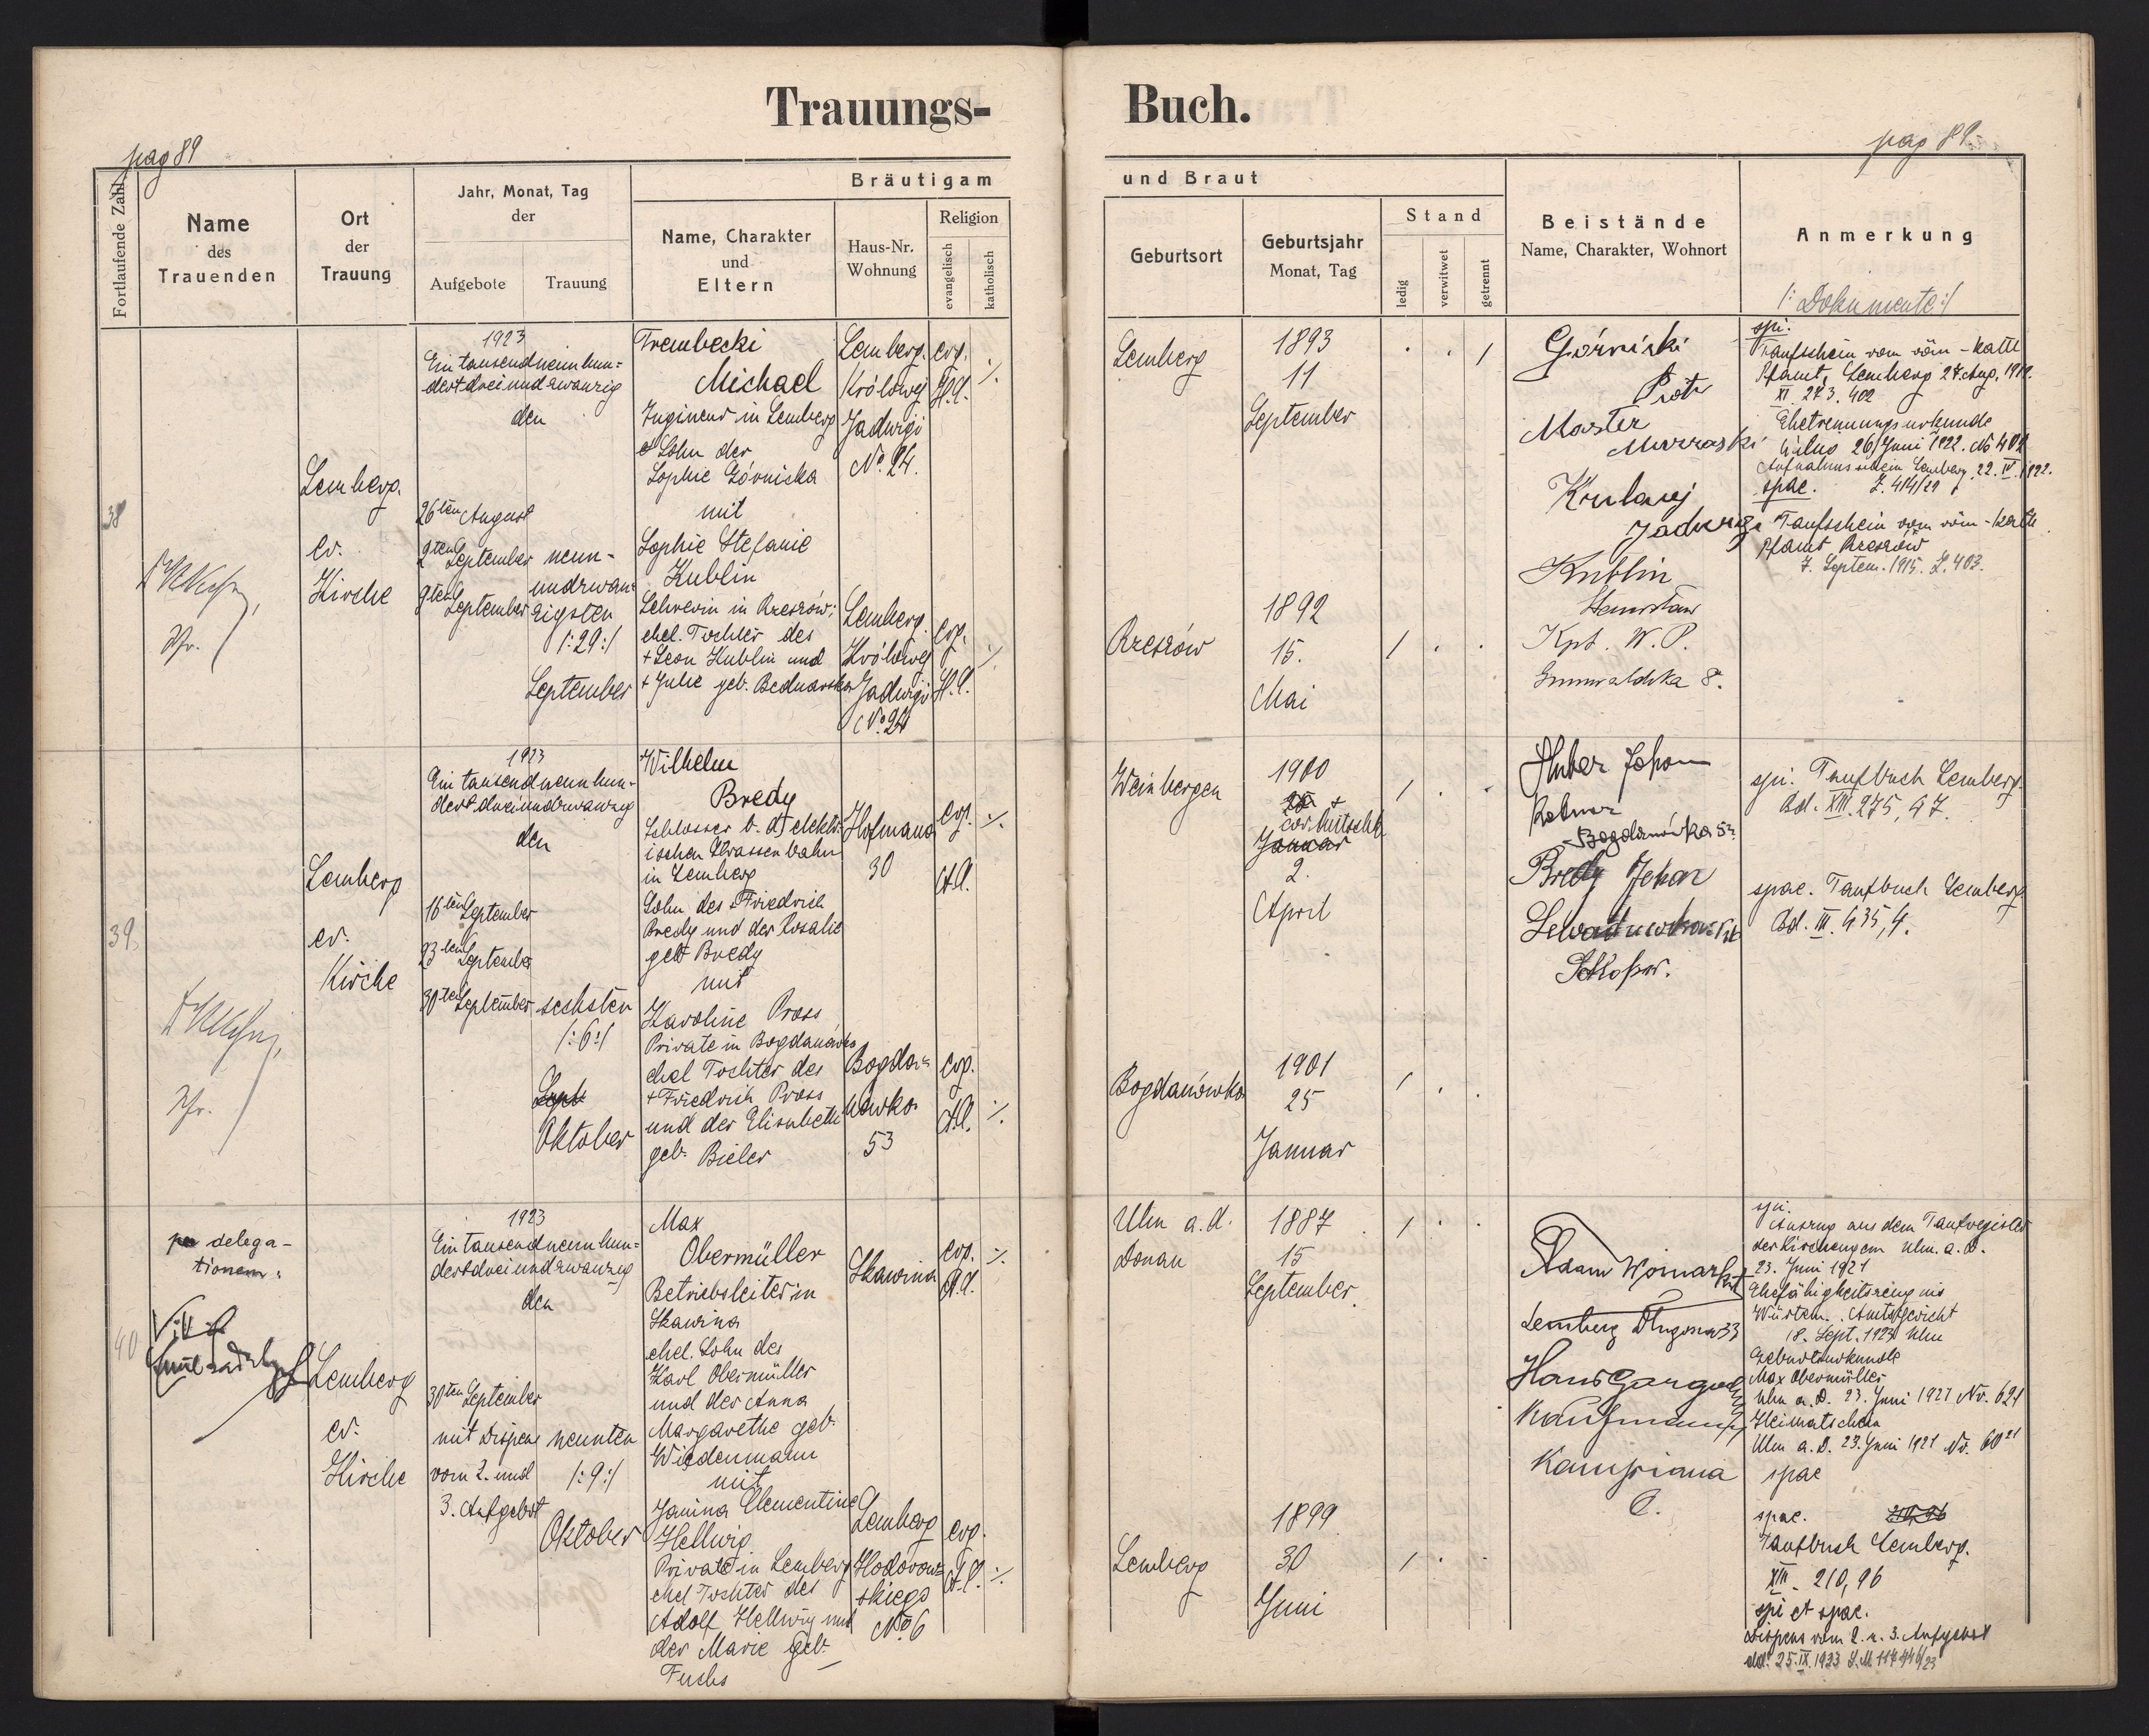 Trauungs-
Buch.
pag 89
pag 89.
Fortlaufende Zahl
Name
des
Trauenden
Ort
der
Trauung
Jahr, Monat, Tag
der
Aufgebote
Trauung
Bräutigam
Name, Charakter
und
Eltern
Haus-Nr.
Wohnung
Religion
evangelisch
katholisch
und Braut
Geburtsort
Geburtsjahr
Monat, Tag
Stand
ledig
verwitwet
getrennt
Beistände
Name, Charakter, Wohnort
Anmerkung
/: Dokumente :/
38
Zhr.
Lemberg
ev.
Kirche
1923
Ein tausendneunhun=
dertdreiundzwanzig
den
26ten August
2ten September
9ten September
neun-
undzwan=
zigsten
/:29:/
September
Trembecki
Michael
Ingineur in Lemberg
Sohn der
Sophie Górnicka
mit
Sophie Stefanie
Kublin
Lehrerin in Rzeszów;
ehel. Tochter des
+ Leon Kublin und
+ Julie geb. Bednarska
Lemberg.
Królowej
Jadwigi
No. 24.
evg.
H.C.
Lemberg.
Królowej
Jadwigi
No. 24
evg.
H.C.
Lemberg
1893
11
September
Rzeszów
1892
15.
Mai
Górnicki
Piotr
Królowej
Jadwigi
Kublin
Stanisław
Kpt. W. P.
Grunwaldzka 8.
spi.
Taufschein vom röm-kath
Pfamt, Lemberg 27. Aug. 1919.
XI. 273. 402
Ehetrennungsurkunde
Wilno 26 Juni 1922. No 402
Aufnahmsschein Lemberg 22. IV. 1922.
spae. Z. 414/21
Taufschein vom röm-kath
Pfamt Rzeszów
7. Septem. 1915. Z. 403.
39.
Zhr.
Lemberg
ev.
Kirche
1923
Ein tausendneunhun-
dertdreiundzwanzig
den
16ten September
23ten September
30ten September
sechsten
/:6:/
Sept
Oktober
Wilhelm
Bredy
Schlosser b. d. elektr-
ischen Strassenbahn
in Lemberg
Sohn des Friedrich
Bredy und der Rosalie
geb Bredy
mit
Karoline Pross,
Private in Bogdanówka
ehel Tochter des
+ Friedrich Pross
und der Elisabeth
geb. Bieler
Hofmana
30
evg.
A.C.
Bogda=
nówka
53
evg.
A.C.
Weinbergen
1900
Januar
2.
April
Bogdanówka
1901
25
Januar
Huber Johann
Bogdanówka 52
Bredy Johan
spi. Taufbuch Lemberg.
Bd. XIII. 275, 47.
spae. Taufbuch Lemberg
Bd. III. 435, 4.
40
per delega-
tionem:
Lemberg
ev.
Kirche
1923
Ein tausendneunhun=
dertdreiundzwanzig
den
30ten September
mit Dispens
vom 2. und
3. Aufgebot
neunten
/:9:/
Oktober
Max
Obermüller
Betriebsleiter in
Skawina
ehel. Sohn des
Karl Obermüller
und der Anna
Margarethe geb.
Wiedenmann
mit
Janina Clementine
Hellwig
Private in Lemberg
ehel Tochter des
Adolf Hellwig und
der Marie geb.
Fuchs
Skawina
evg.
A.C.
Lemberg
Hodorow=
skiego
No. 6
evg.
A.C.
Ulm a. d.
Donau
1887
15
September
Lemberg
1899
30
Juni
Adam
Lemberg Długosza 33
Hans
Kaufmann
C.
spi.
Auszug aus dem Taufregister
der Kirchengem Ulm. a. D.
23. Juni 1921
Ehefähigkeitszeugnis
Würtem. Amtsgericht
18. Sept. 1923 Ulm
Geburtsurkunde
Max Obermüller
Ulm a. D. 23. Juni 1921 Nr. 621
Heimatschein
Ulm a. D. 23. Juni 1921 Nr. 6021
spae
spae. 210,96
Taufbuch Lemberg.
XIII. 210,96
spi et spae.
Dispens vom 2. u. 3. Aufgebot
dd. 25. IX. 1923